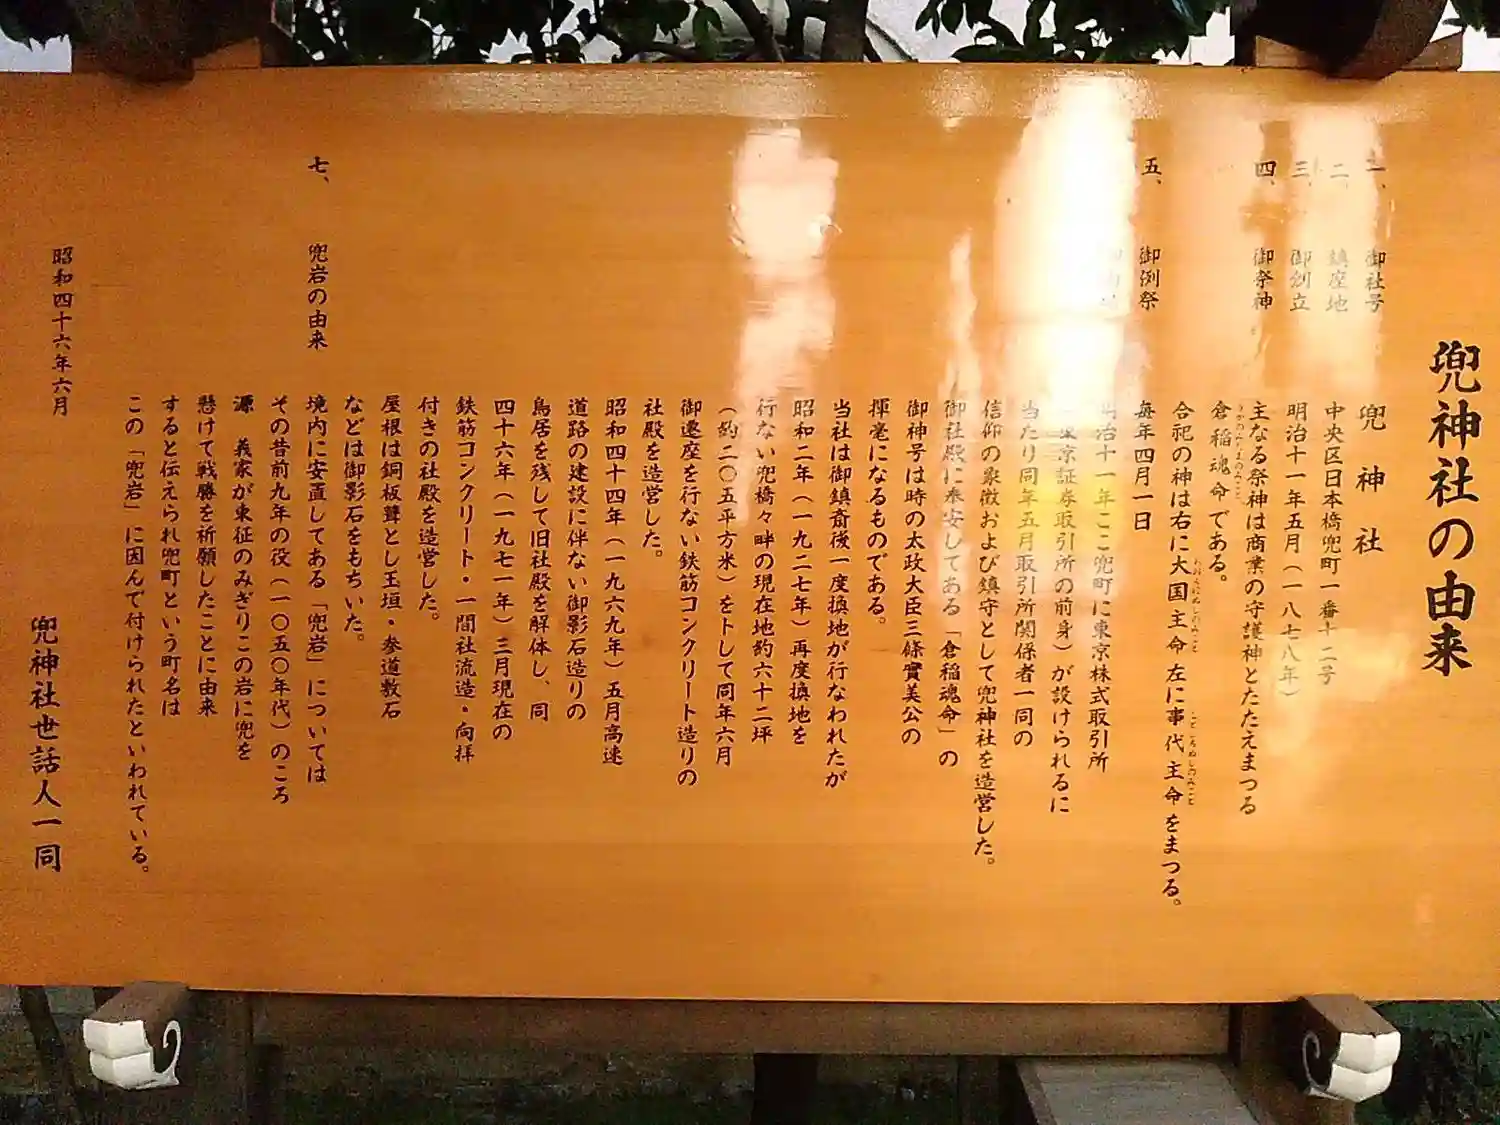 兜神社の由来
一、 御社号 兜神社
二、 鎮座地 中央区日本橋兜町一番十二号
三、 御創立 明治十一年五月(一八七八年)
四、 御祭神 主なる祭神は商業の守護神とたたえまつる
倉稲魂命である。
合祀の神は右に大国主命 左に事代主命をまつる。
五、 御例祭 毎年四月一日
明治十一年ここ兜町に東京株式取引所
東京証券取引所の前身)が設けられるに
当たり同年五月取引所関係者一同の
信仰の象徴および鎮守として兜神社を造営した。
御社殿に奉安してある「倉稲魂命」の
御神号は時の太政大臣三條實美公の
揮毫になるものである。
当社は御鎮斎後一度換地が行なわれたが
昭和二年(一九二七年)再度換地を
行ない兜橋々畔の現在地約六十二坪
(約二〇五平方米)を卜して同年六月
御遷座を行ない鉄筋コンクリート造りの
社殿を造営した。
昭和四十四年(一九六九年)五月高速
道路の建設に伴ない御影石造りの
鳥居を残して旧社殿を解体し、同
四十六年(一九七一年)三月現在の
鉄筋コンクリート・一間社流造・向拝
付きの社殿を造営した。
屋根は銅板葺とし玉垣・参道敷石
などは御影石をもちいた。
七、 兜岩の由来 境内に安置してある「兜岩」については
その昔前九年の役(一〇五〇年代)のころ
源 義家が東征のみぎりこの岩に兜を
懸けて戦勝を祈願したことに由来
すると伝えられ兜町という町名は
この「兜岩」に因んで付けられたといわれている。
昭和四十六年六月
兜神社世話人一同